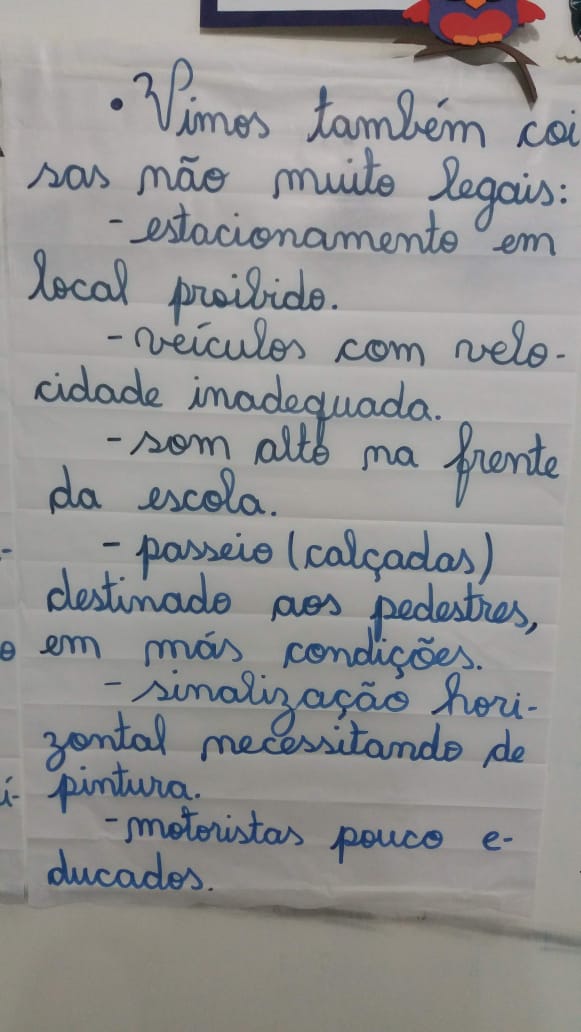 • Vimos também coi
sas não muito legais:
- estacionamento em
local proibido.
- veículos com velo-
cidade inadequada.
- som alto na frente
da escola.
- passeio (calçadas)
destinado aos pedestres,
em más condições.
- sinalização hori-
zontal necessitando de
pintura.
- motoristas pouco e-
ducados.